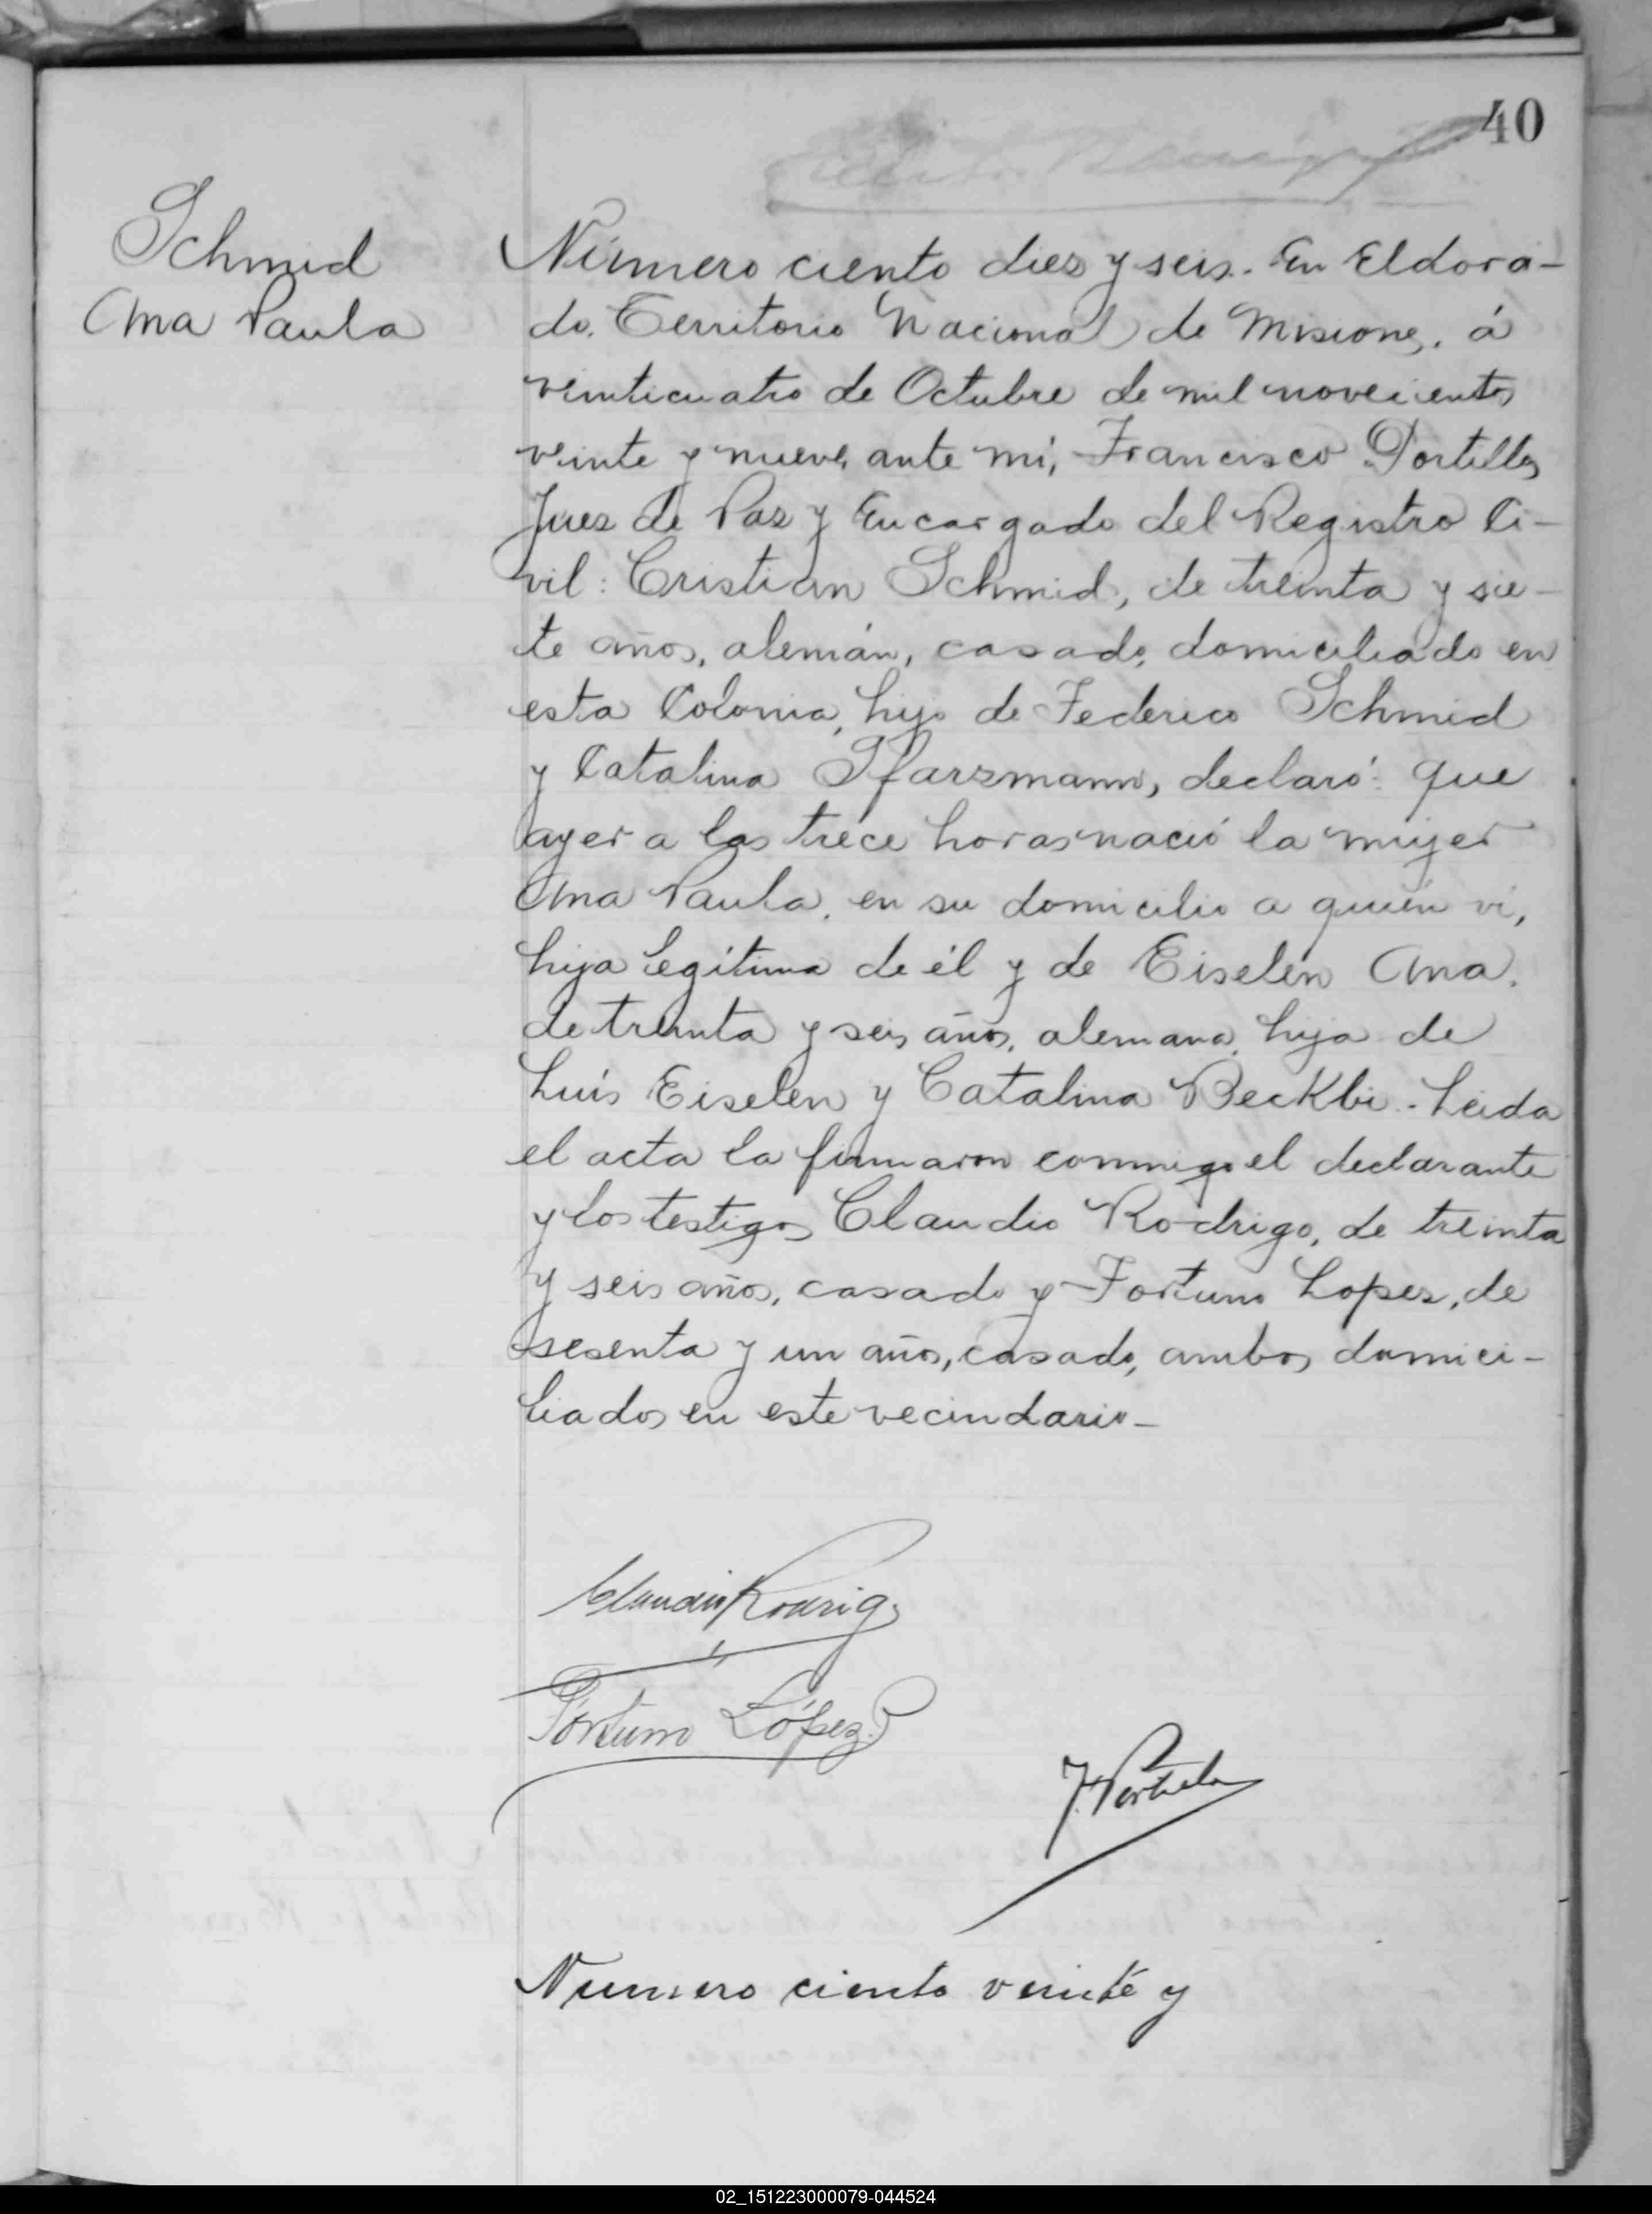 40
Schmid
Ana Paula
Número ciento diez y seis. En Eldora-
do, Territorio Nacional de Misiones, á
veinticuatro de Octubre de mil novecientos
veinte y nueve, ante mí, Francisco Portillo,
Juez de Paz y Encargado del Registro Ci-
vil: Cristian Schmid, de treinta y sie-
te años, alemán, casado, domiciliado en
esta Colonia, hijo de Federico Schmid
y Catalina Pfarzmann, declaró: que
ayer a las trece horas nació la mujer
Ana Paula, en su domicilio a quién ví,
hija legítima de él y de Eiselen Ana,
de treinta y seis años, alemana, hija de
Luis Eiselen y Catalina Beckbi. Leida
el acta la firmaron conmigo el declarante
y los testigos Claudio Rodrigo, de treinta
y seis años, casado y Fortuno Lopez, de
sesenta y un años, casado, ambos domici-
liados en este vecindario_
Claudio Rodrigo
Fortuno López
F. Portillo
Numero ciento veinte y
02_151223000079-044524